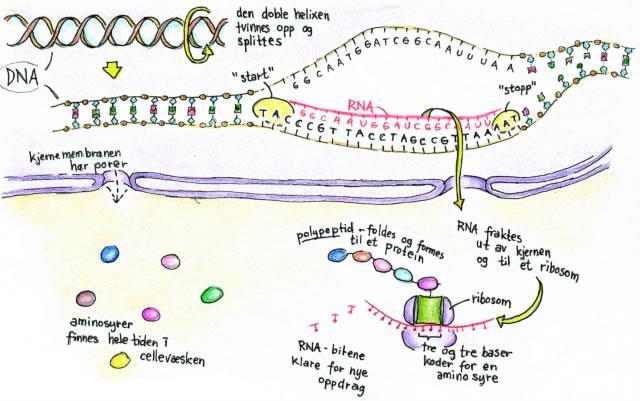 den doble helixen
tvinnes opp og
splittes
DNA
"start"
GGCAATGGATCGGCAAUUUAA
"stopp"
RNA
GGCAAUGGAUCGGC AUU
TACCCGTTACCTAGCCGTTAAAAT
kjernemembranen
har porer
RNA fraktes
ut av kjernen
og til et ribosom
polypeptid - foldes og formes
til et protein
ribosom
aminosyrer
finnes hele tiden i
cellevæsken
RNA-bitene
klare for nye
oppdrag
tre og tre baser
koder for en
amino syre